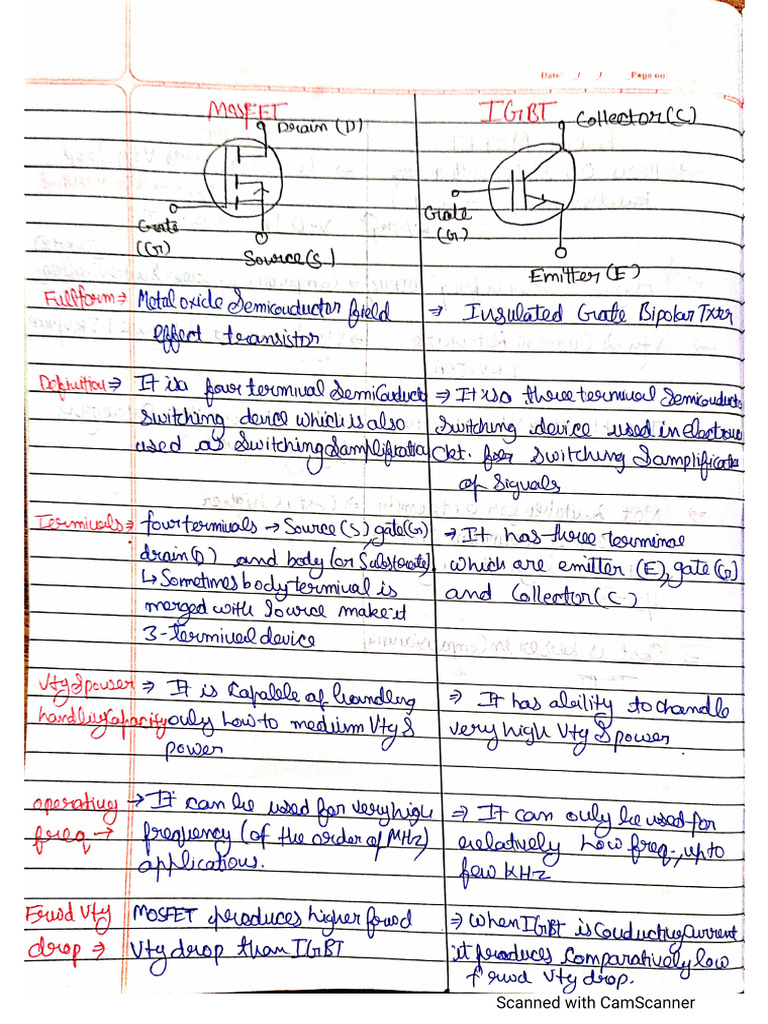 Date: / / Page no:
MOSFET
Drain (D)
Gate
(G)
Source(S)
IGBT
Collector(C)
Gate
(G)
Emitter(E)
Fullform⇒ Metal oxide Semiconductor field
effect transistor
⇒ Insulated Gate Bipolar Txter
Definition⇒ It is four terminal Semiconducto
switching device which is also
used as switching & amplification
⇒ It is three terminal Semiconducto
switching device used in electronic
Ckt. for switching & amplification
of signals
Terminals⇒ four terminals → Source(S), gate(G)
drain(D) and body (or Substrate)
↳ Sometimes body terminal is
merged with source make it
3-terminal device
⇒ It has three terminal
which are emitter (E), gate(G)
and Collector(C)
Vtg & power
handling Capacity
⇒ It is Capable of handling
only low to medium Vtg &
power
⇒ It has ability to handle
very high Vtg & power
operating
freq →
→ It can be used for very high
frequency (of the order of MHz)
applications.
⇒ It can only be used for
relatively low freq., upto
few KHz
Frwd Vtg
drop ⇒
MOSFET produces higher frwd
Vtg drop than IGBT
⇒ when IGBT is conducting current
it produces comparatively low
frwd Vtg drop.
Scanned with CamScanner